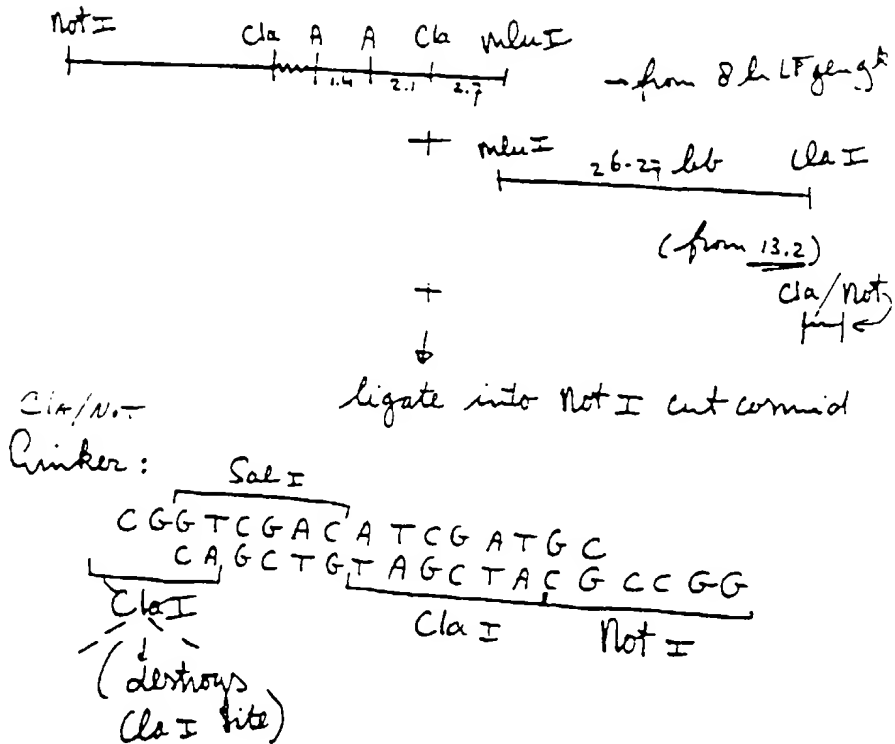 Not I Cla A A Cla mlu I
1.4 2.1 2.7
→ from 8 h LF
+
mlu I 26-27 kb Cla I
(from 13.2)
Cla/Not
+
ligate into Not I cut cosmid
Cla/Not
Linker:
Sal I
C G G T C G A C A T C G A T G C
C A G C T G T A G C T A C G C C G G
Cla I Cla I Not I
(destroys
Cla I site)